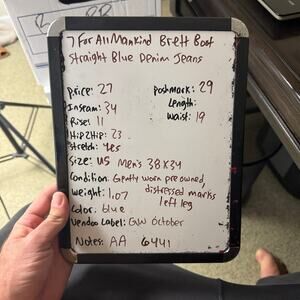 7 For All Mankind Brett Boot
Straight Blue Denim Jeans
Price: 27 Poshmark: 29
Inseam: 34 Length:
Rise: 11 Waist: 19
Hip2Hip: 23
Stretch: Yes
Size: US Men's 38x34
Condition: Gently worn pre owned,
distressed marks
left leg
Weight: 1.07
Color: blue
Vendoo Label: GW October
Notes: AA 6441